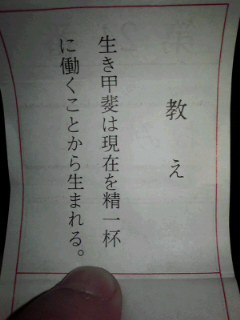 教え
生き甲斐は現在を精一杯
に働くことから生まれる。